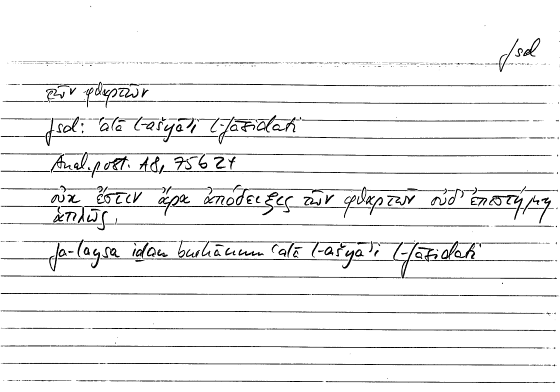 fsd
τῶν φθαρτῶν
fsd: ʿalā l-ašyāʾi l-fāsidati
Anal. post. A8, 75b24
οὐκ ἔστιν ἄρα ἀπόδειξις τῶν φθαρτῶν οὐδ' ἐπιστήμη
ἁπλῶς.
fa-laysa iḏan burhānun ʿalā l-ašyāʾi l-fāsidati